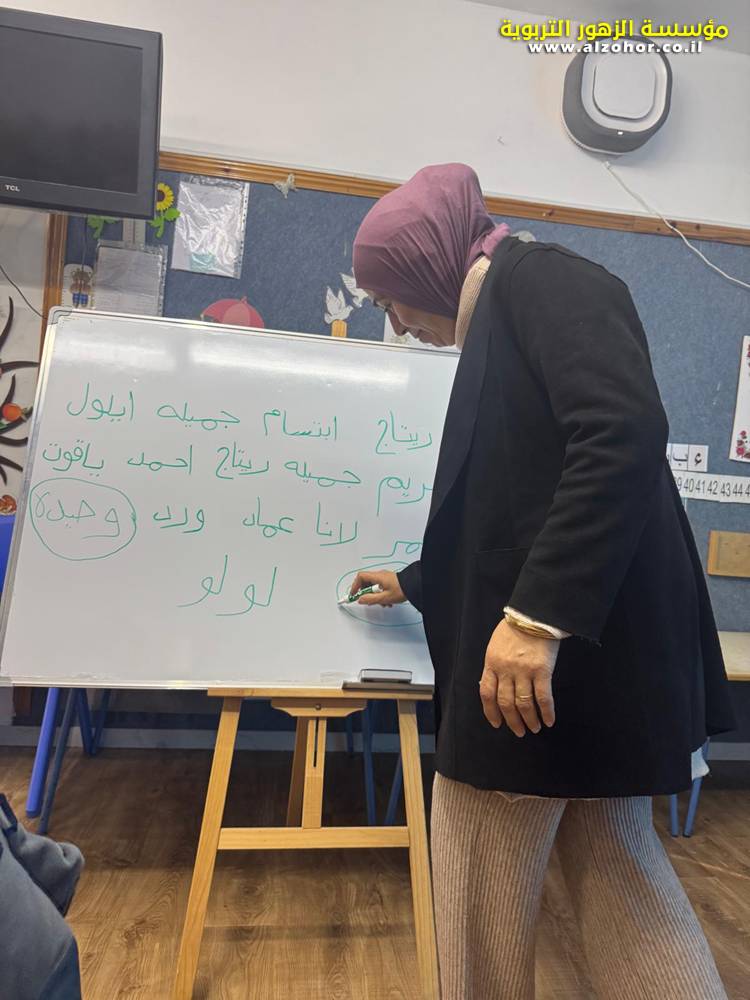 مؤسسة الزهور التربوية
www.alzohor.co.il
TCL
ريتاج ابتسام جميله ايلول
جميله ريتاج احمد ياقوت
لانا عماد ورد وحيدة
لو لو
ء ب
40 41 42 43 44